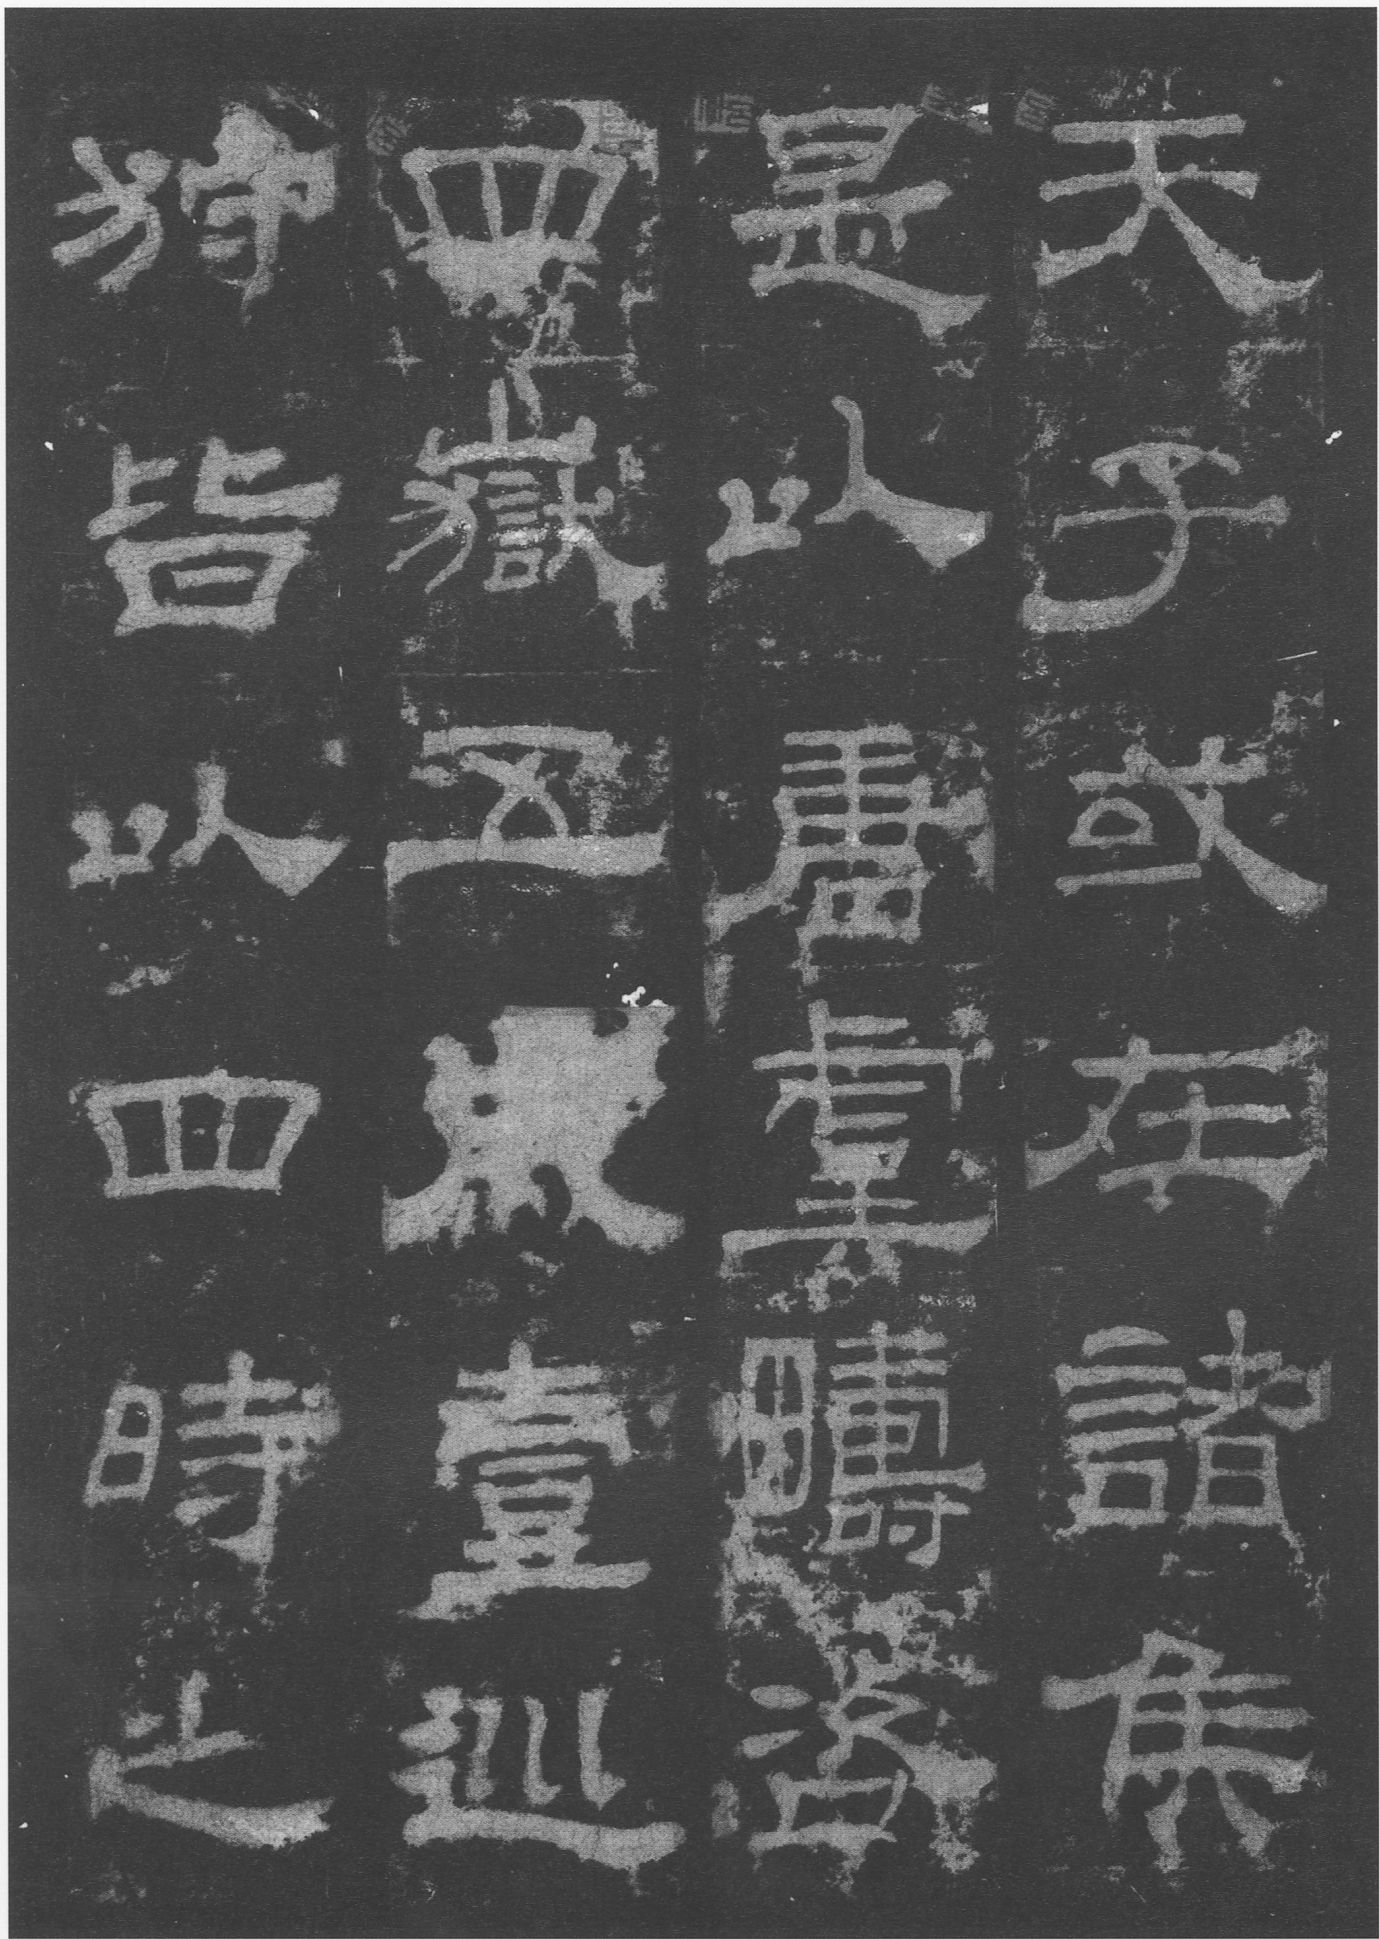 天子或在諸侯
是以唐虞疇咨
四嶽五歲壹巡
狩皆以四時之